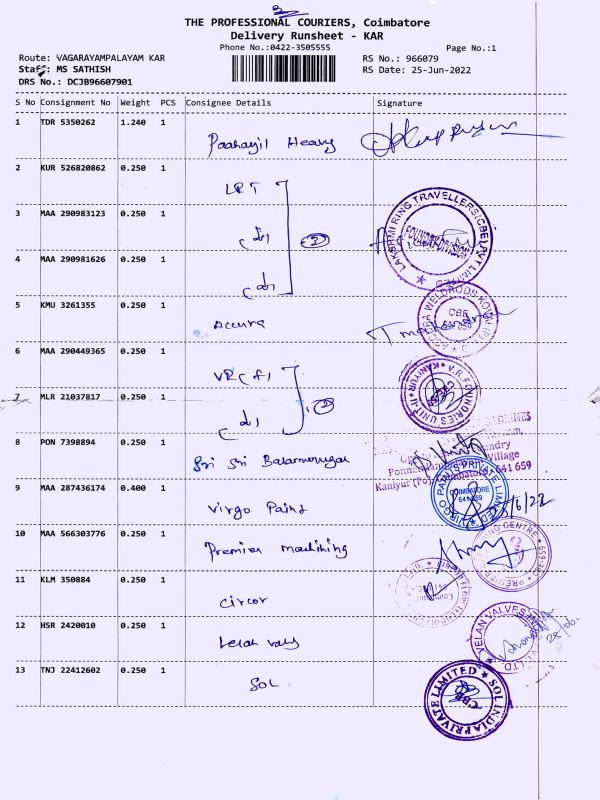 THE PROFESSIONAL COURIERS, Coimbatore
Delivery Runsheet - KAR
Phone No.:0422-3505555
Page No.:1
Route: VAGARAYAMPALAYAM KAR
RS No.: 966079
Staff: MS SATHISH
RS Date: 25-Jun-2022
DRS No.: DCJB96607901
S No Consignment No Weight PCS Consignee Details Signature
1 TDR 5350262 1.240 1
Heavy
2 KUR 526820862 0.250 1
LRT
3 MAA 290983123 0.250 1
LAKSHMI RING TRAVELLERS (CBE) PVT LIMITED
FOUNDRY DIVISION
4 MAA 290981626 0.250 1
5 KMU 3261355 0.250 1
Accura
CBE
6 MAA 290449365 0.250 1
V.R. FOUNDRIES UNIT-II KANIYUR
7 MLR 21037817 0.250 1
8 PON 7398894 0.250 1
Sri Sri Balamurugan
Village
Kaniyur (Po), Coimbatore 641 659
9 MAA 287436174 0.400 1
Virgo Paint
VIRGO PAINTS PRIVATE LIMITED
COIMBATORE
641 659
10 MAA 566303776 0.250 1
Premier machining
11 KLM 350884 0.250 1
Circor
12 HSR 2420010 0.250 1
VELAN VALVES
13 TNJ 22412602 0.250 1
SOL
SOL INDIA PRIVATE LIMITED
CBE